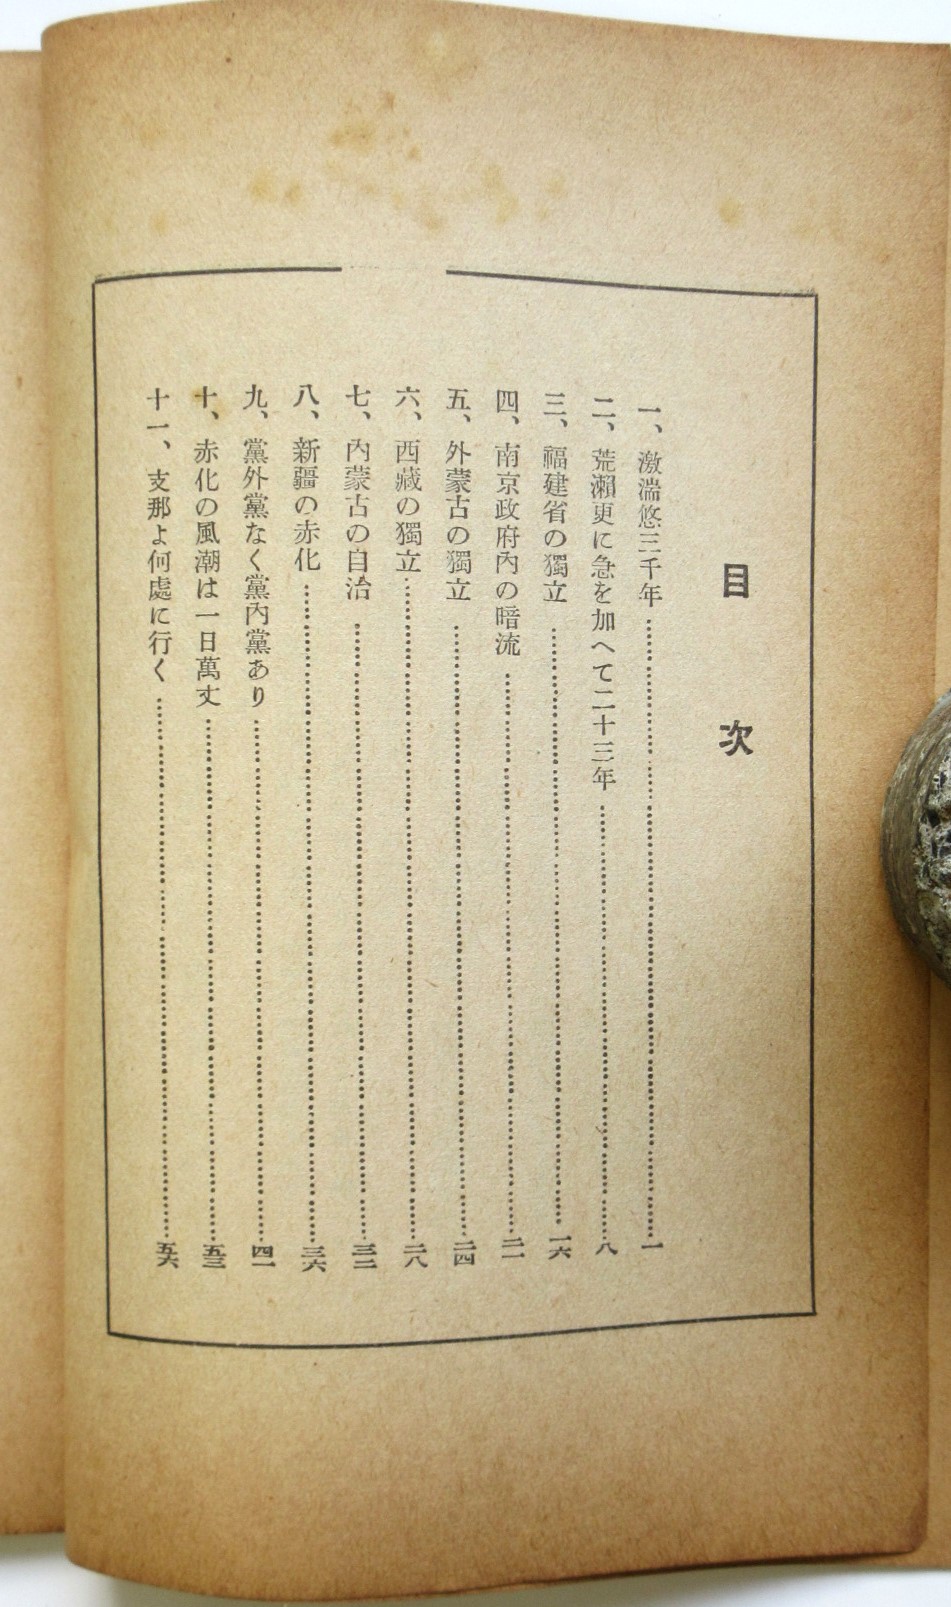 目次
一、激湍悠三千年……一
二、荒瀬更に急を加へて二十三年……八
三、福建省の獨立……一六
四、南京政府內の暗流……二一
五、外蒙古の獨立……二四
六、西藏の獨立……二八
七、內蒙古の自治……三二
八、新疆の赤化……三六
九、黨外黨なく黨內黨あり……四一
十、赤化の風潮は一日萬丈……五三
十一、支那よ何處に行く……五六